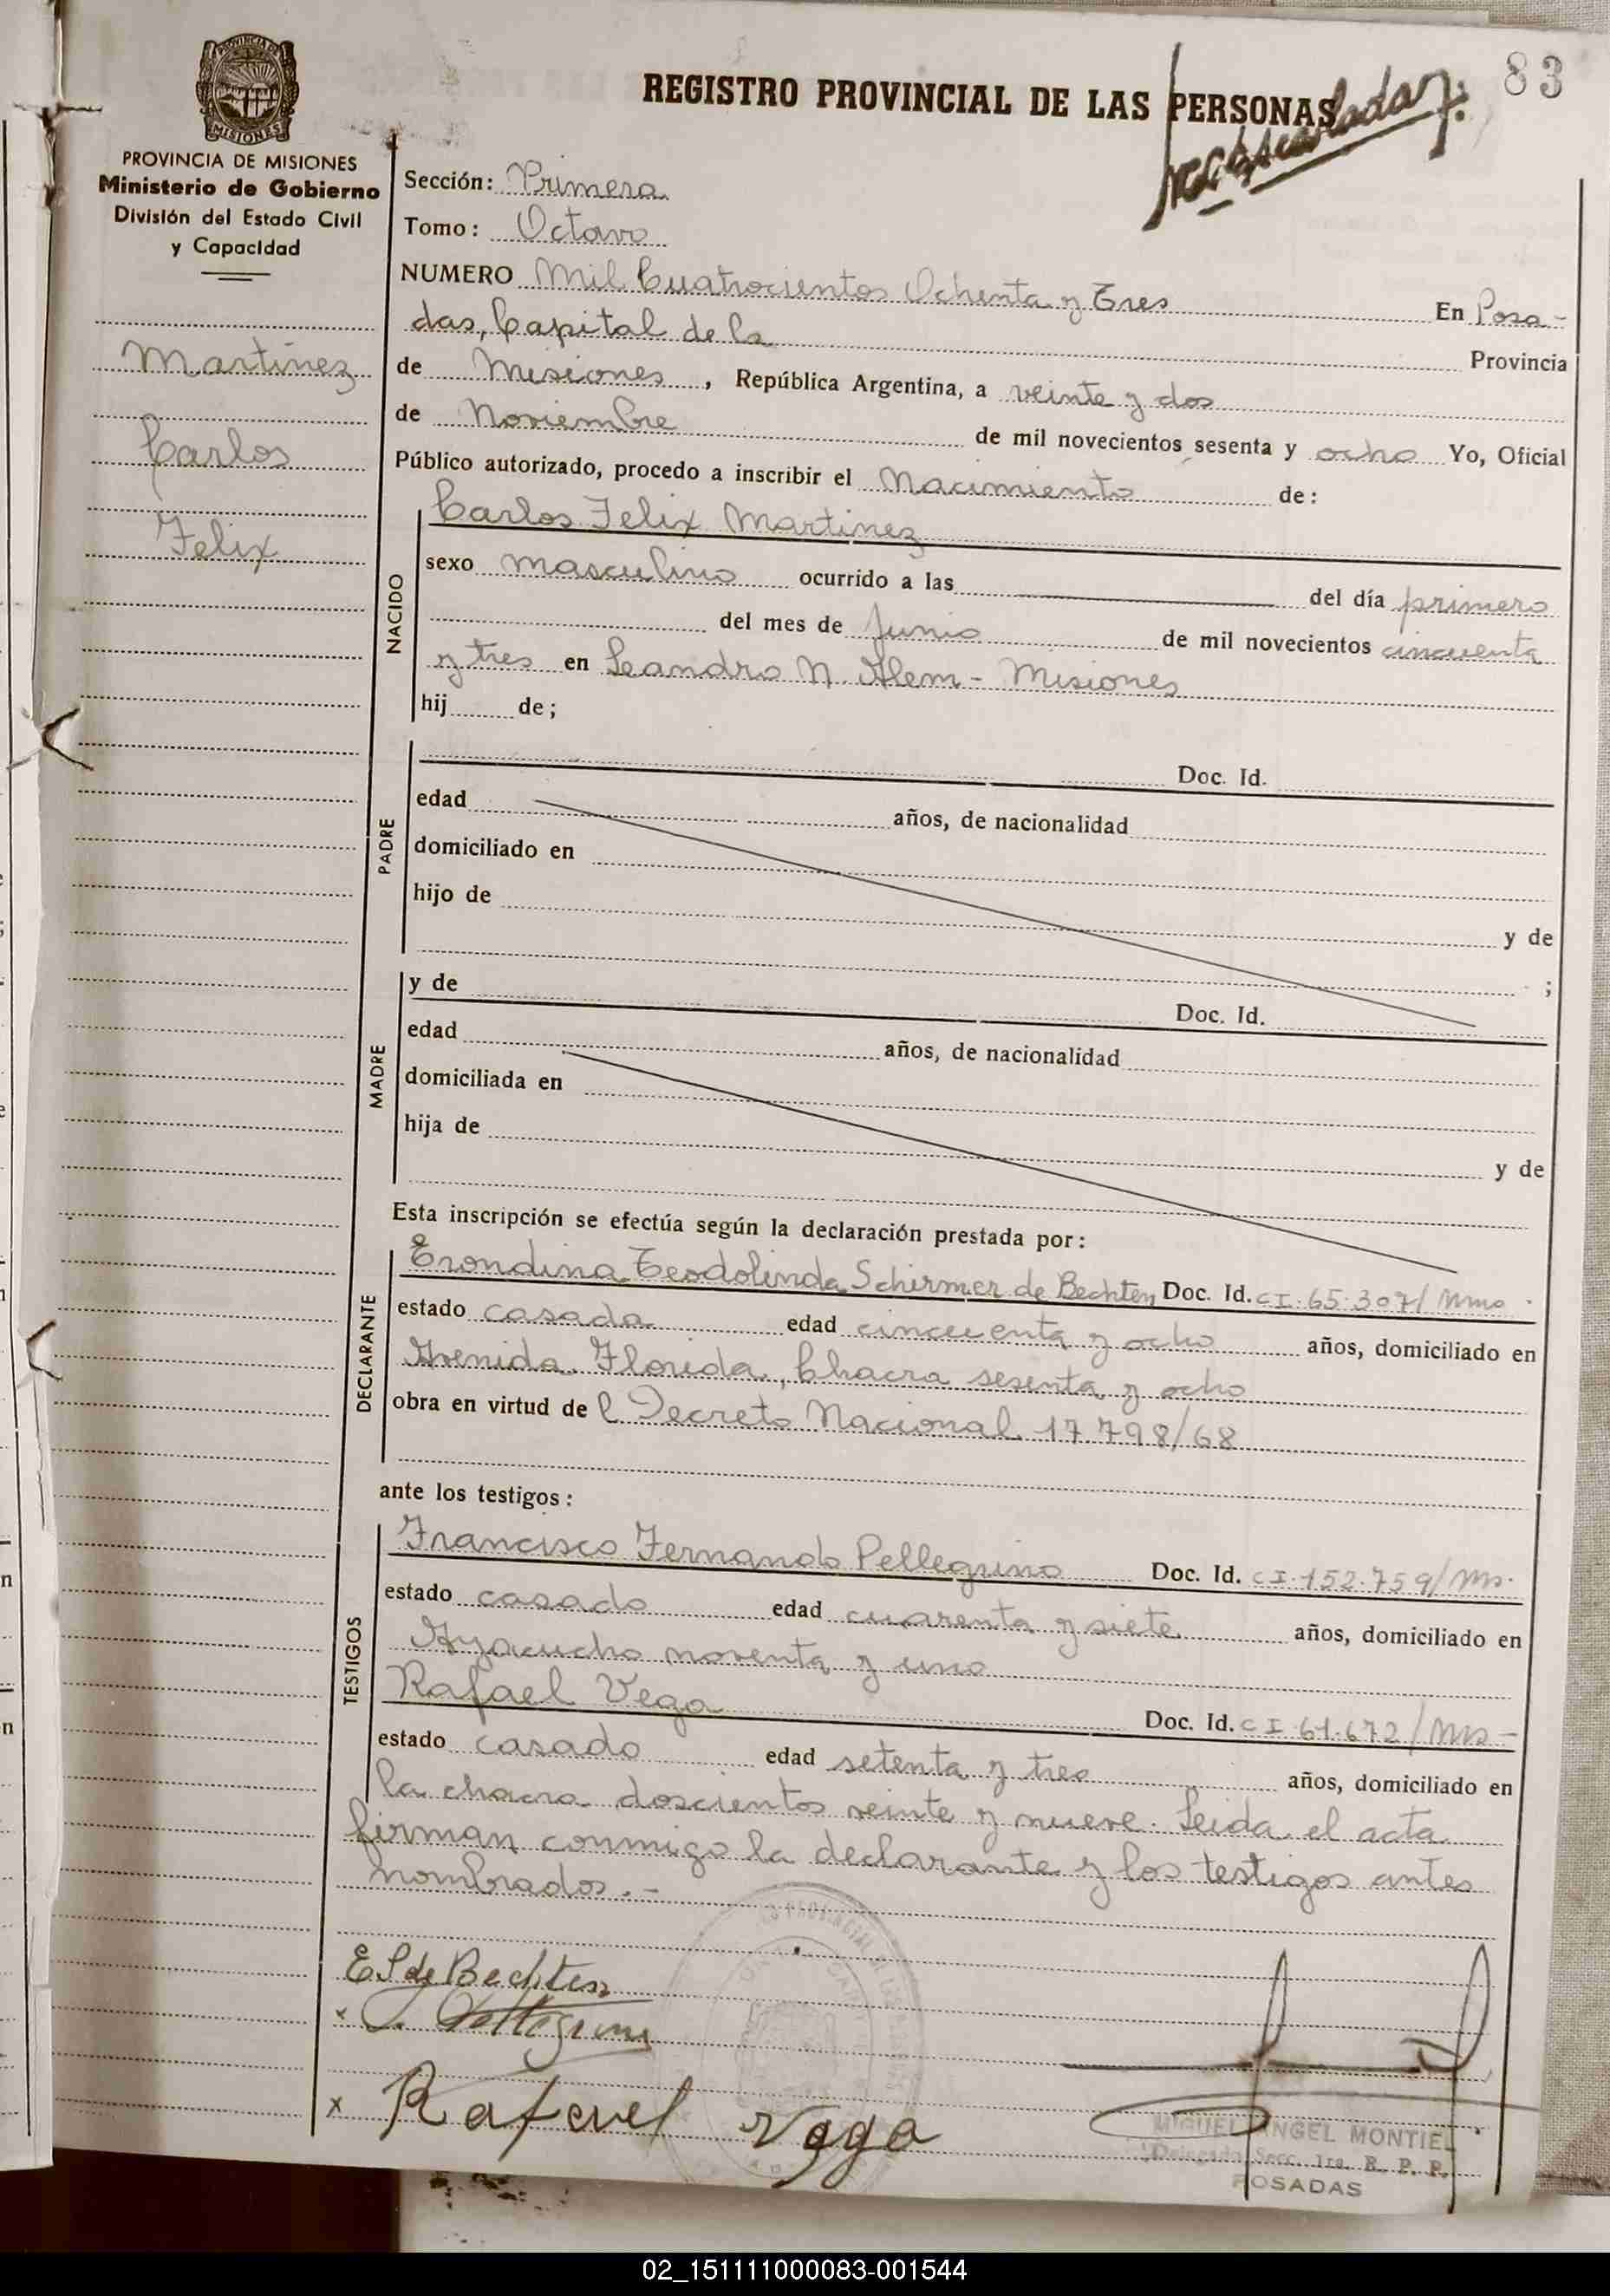 83
REGISTRO PROVINCIAL DE LAS PERSONAS
PROVINCIA DE MISIONES
Ministerio de Gobierno
División del Estado Civil
y Capacidad
Martinez
Carlos
Felix
Sección: Primera
Tomo: Octavo
NUMERO Mil Cuatrocientos Ochenta y Tres En Posa-
das, Capital de la Provincia
de Misiones, República Argentina, a veinte y dos
de Noviembre de mil novecientos sesenta y ocho Yo, Oficial
Público autorizado, procedo a inscribir el Nacimiento de:
NACIDO
Carlos Felix Martinez
sexo masculino ocurrido a las del día primero
del mes de Junio de mil novecientos cincuenta
y tres en Leandro N. Alem - Misiones
hij de;
PADRE
Doc. Id.
edad años, de nacionalidad
domiciliado en
hijo de y de
;
MADRE
y de Doc. Id.
edad años, de nacionalidad
domiciliada en
hija de y de
Esta inscripción se efectúa según la declaración prestada por:
DECLARANTE
Erondina Teodolinda Schirmer de Bechten Doc. Id. CI. 65.307/
estado casada edad cincuenta y ocho años, domiciliado en
Avenida Florida, Chacra sesenta y ocho
obra en virtud de l Decreto Nacional 17.798/68
ante los testigos:
TESTIGOS
Francisco Fernando Pellegrino Doc. Id. CI. 152.759/
estado casado edad cuarenta y siete años, domiciliado en
Ayacucho noventa y uno
Rafael Vega Doc. Id. CI 61.672/
estado casado edad setenta y tres años, domiciliado en
la chacra doscientos veinte y nueve. Leida el acta
firman conmigo la declarante y los testigos antes
nombrados.-
E S de Bechten
x Pellegrino
x Rafael Vega
MIGUEL ANGEL MONTIEL
Delegado Secc. 1ra. R. P. P.
POSADAS
02_151111000083-001544